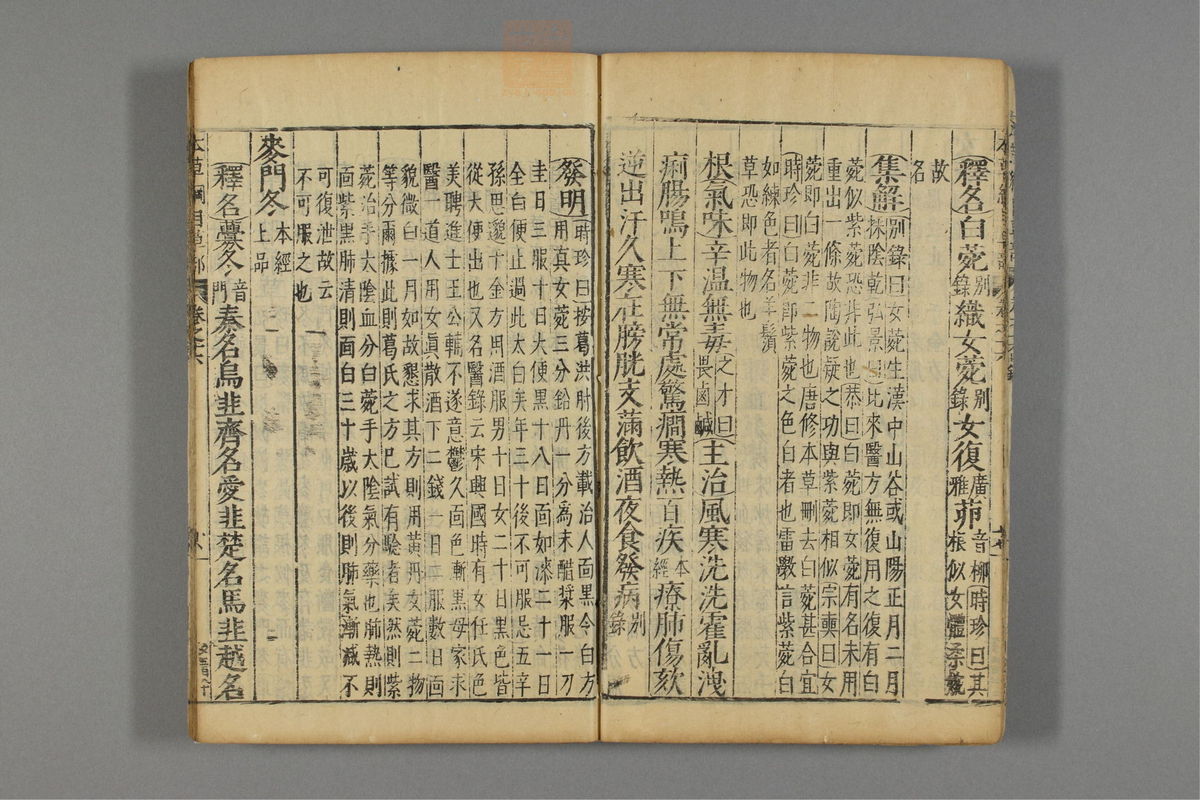 釋名白菀別錄織女菀別錄女復廣雅茆音柳時珍曰其根似女體柔婉
故名
集解別錄曰女菀生漢中山谷或山陽正月二月
採陰乾弘景曰比來醫方無復用之復有白
菀似紫菀恐非此也恭曰白菀即女菀有名未用
重出一條故陶說疑之功與紫菀相似宗奭曰女
菀即白菀非二物也唐修本草刪去白菀甚合宜
時珍曰白菀即紫菀之色白者也雷斅言紫菀白
如練色者名羊鬚
草恐即此物也
根氣味辛溫無毒之才曰畏鹵鹹主治風寒洗洗霍亂洩
痢腸鳴上下無常處驚癇寒熱百疾本經療肺傷欬
逆出汗久寒在膀胱支滿飲酒夜食發病別錄
發明時珍曰按葛洪肘後方載治人面黑令白方
用真女菀三分鉛丹一分爲末醋漿服一刀
圭日三服十日大便黑十八日面如漆二十一日
全白便止過此太白矣年三十後不可服忌五辛
孫思邈千金方用酒服男十日女二十日黑色皆
從大便出也又名醫錄云宋興國時有女任氏色
美聘進士王公輔不遂意鬱久面色漸黑母家求
醫一道人用女眞散酒下二錢一日二服數日面
貌微白一月如故懇求其方則用黃丹女菀二物
等分爾據此則葛氏之方已試有驗者矣然則紫
菀治手大陰血分白菀手大陰氣分藥也肺熱則
面紫黑肺清則面白三十歲以後則肺氣漸減不
可復泄故云
不可服之也
麥門冬本經上品
釋名虋冬音門秦名烏韭齊名愛韭楚名馬韭越名